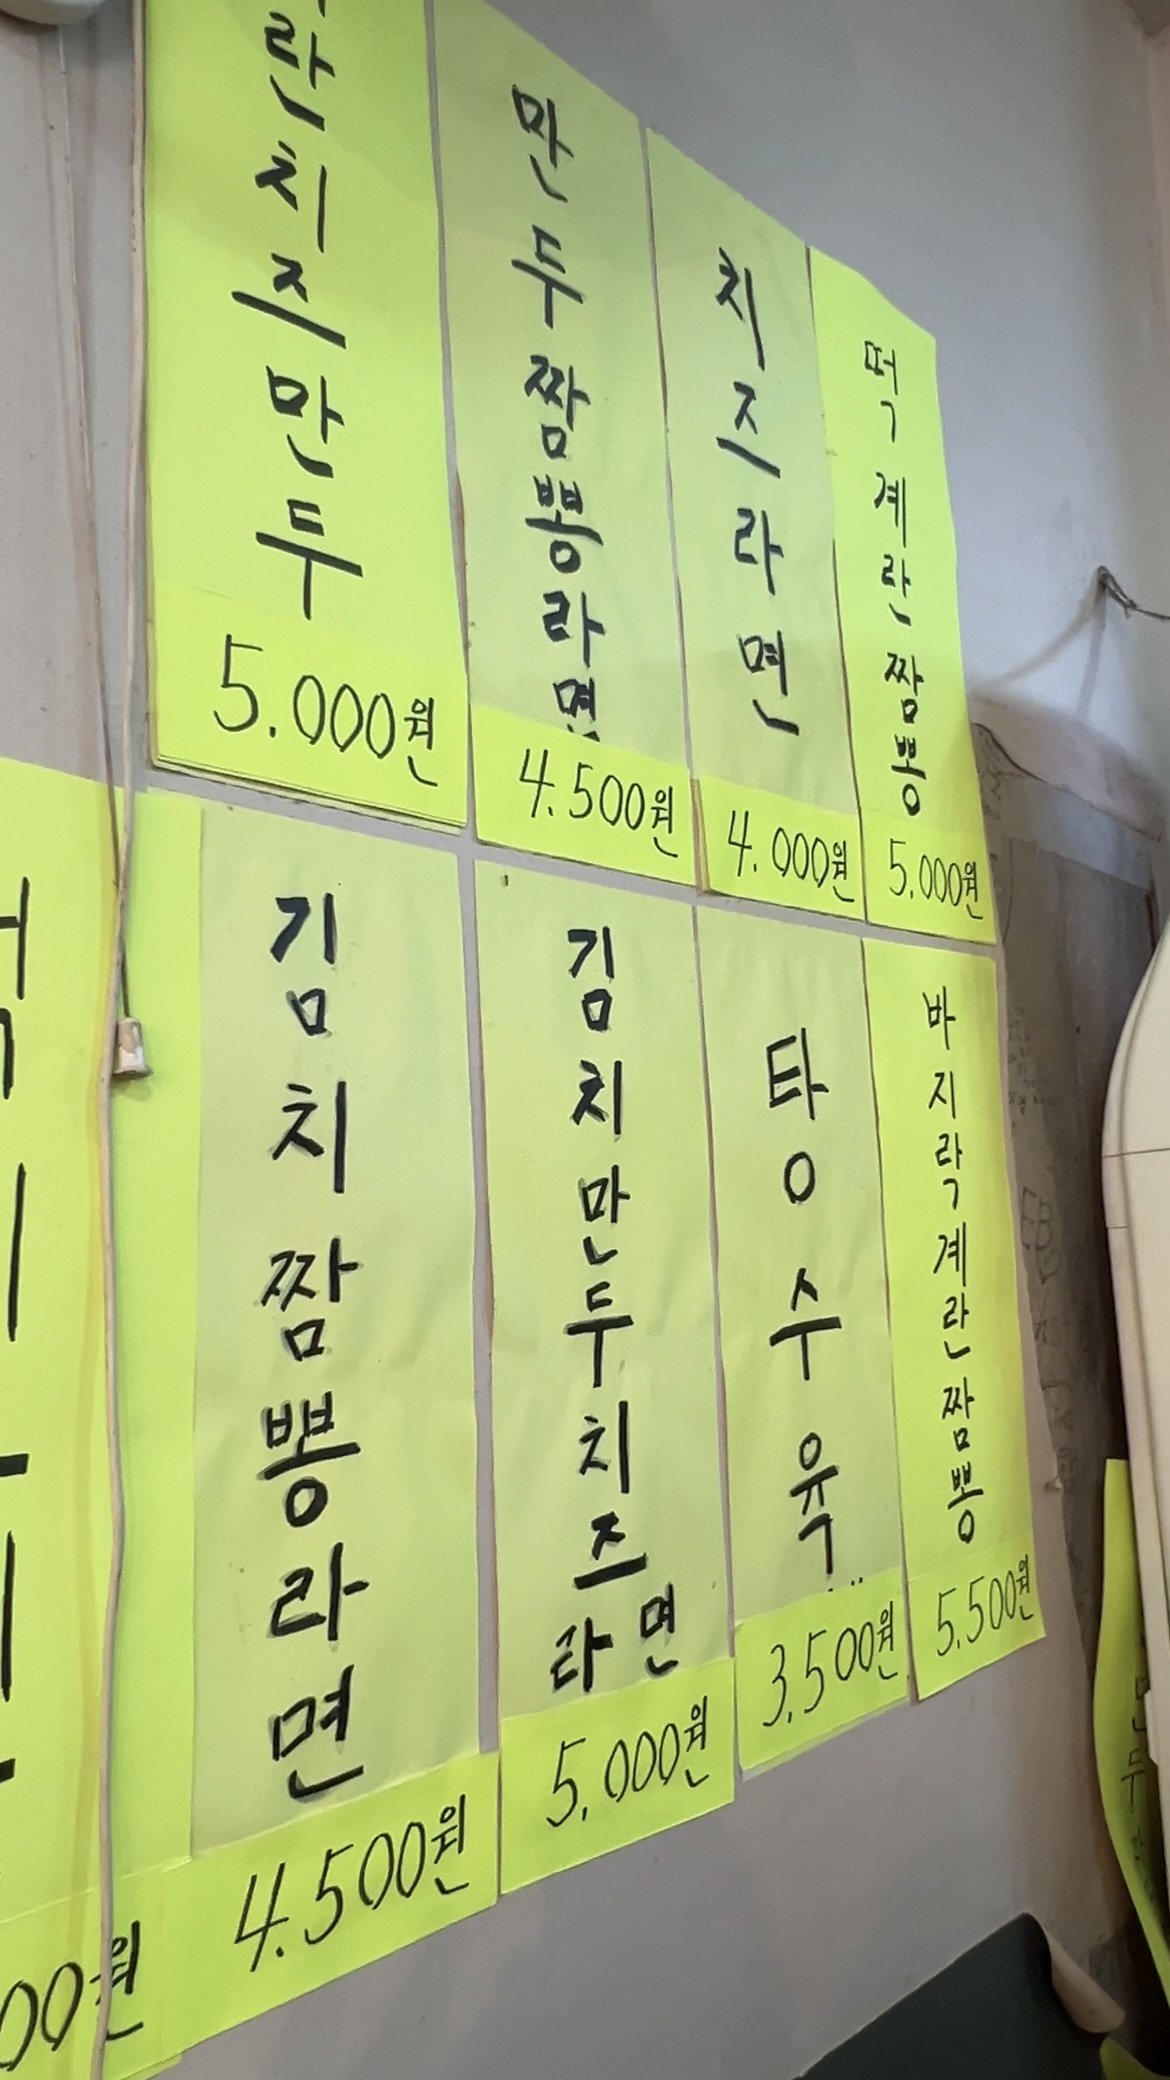 란치즈만두
5.000원
만두짬뽕라면
4.500원
치즈라면
4.000원
떡계란짬뽕
5.000원
김치짬뽕라면
4.500원
김치만두치즈
라면
5.000원
탕수육
3.500원
바지락계란짬뽕
5.500원
00원